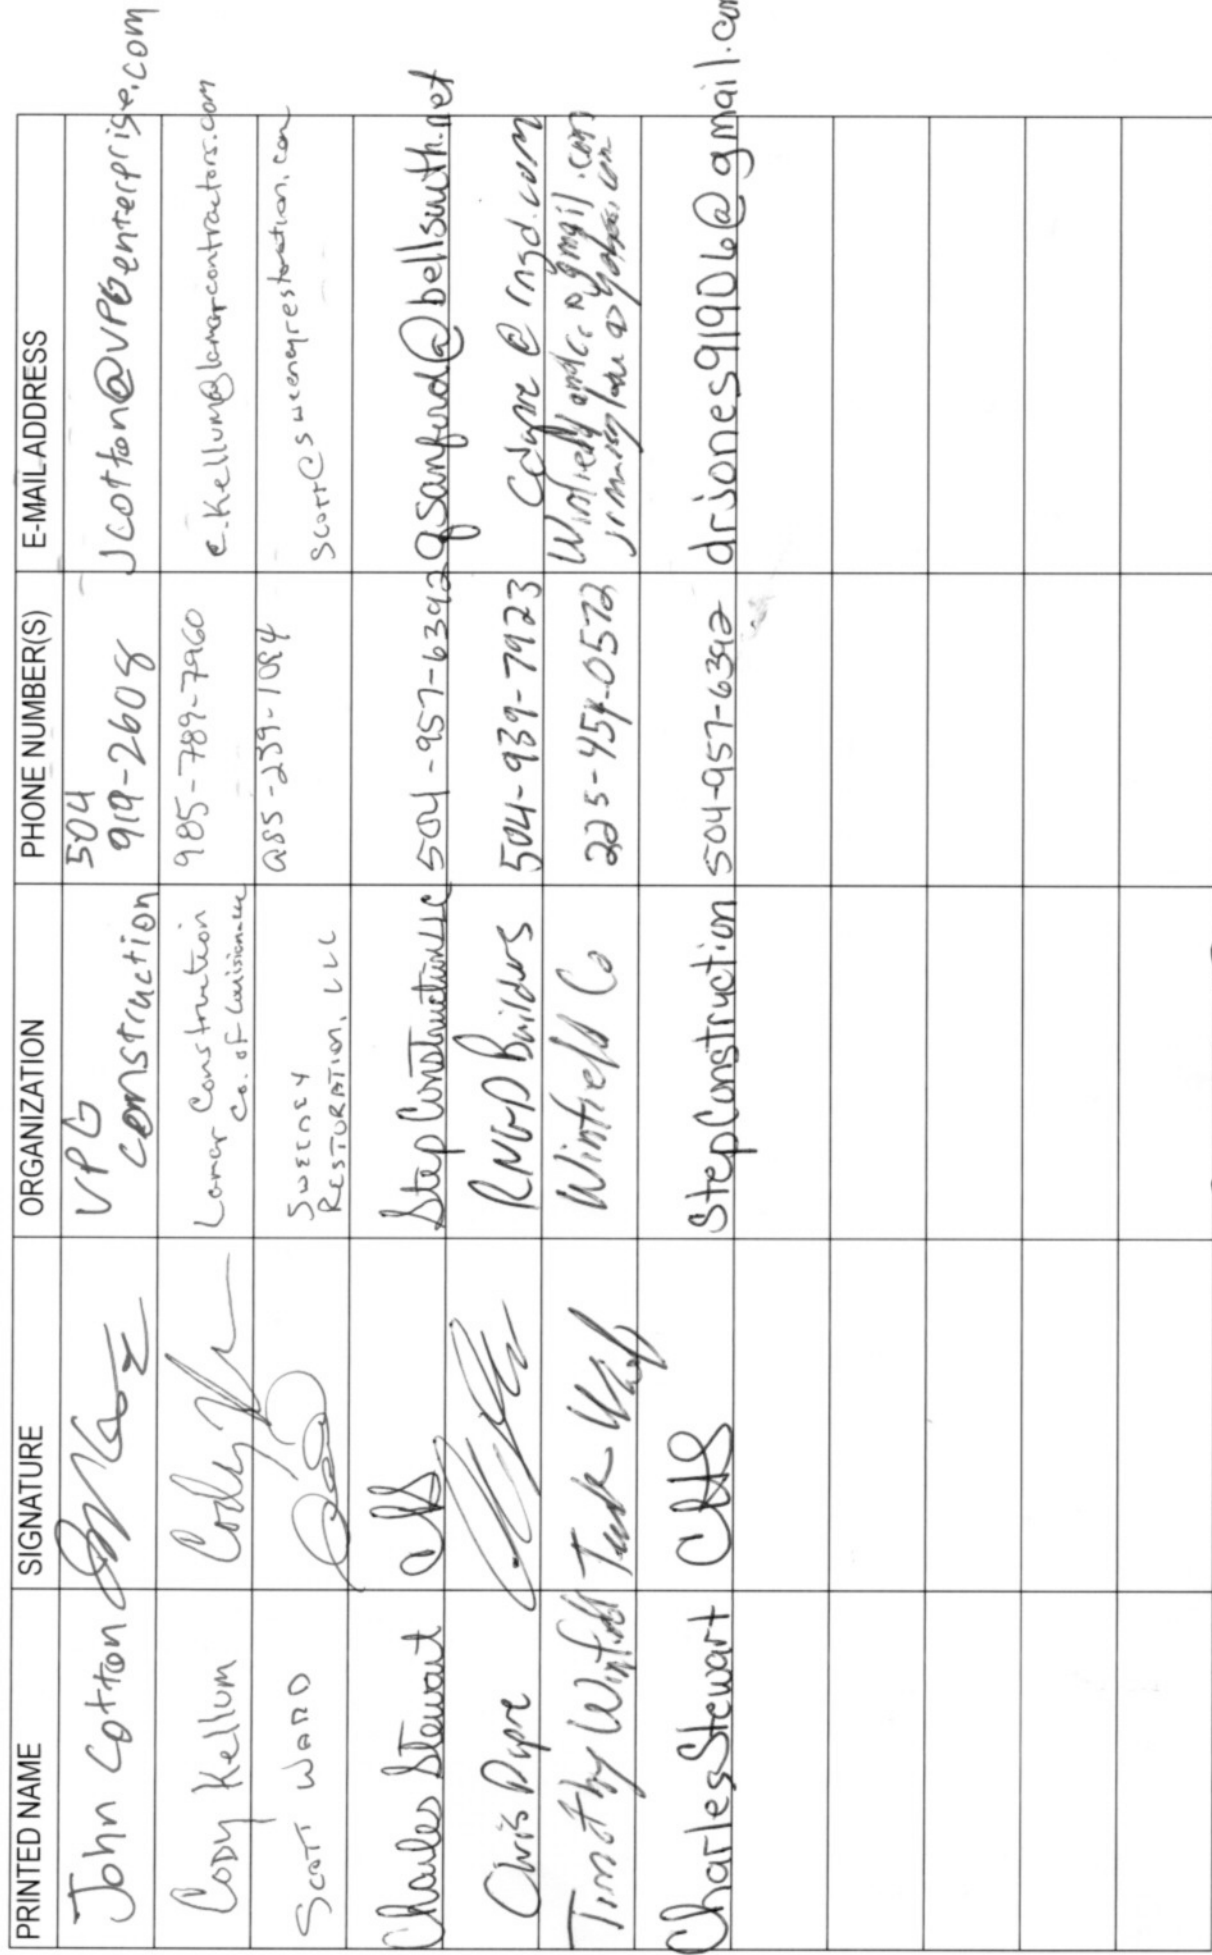 PRINTED NAME SIGNATURE ORGANIZATION PHONE NUMBER(S) E-MAIL ADDRESS
John Cotton VPG Construction 504 919-2608 Jcotton@VPGenterprise.com
Cody Kellum Lamar Construction Co. of Louisiana LLC 985-789-7960 c.kellum@lamarcontractors.com
SCOTT WARD SWEENEY RESTORATION, LLC 985-239-1084 SCOTT@sweeneyrestoration.com
Charles Stewart Step Construction LLC 504-957-6392 qsanford@bellsouth.net
Chris Dyre RNGD Builders 504-939-7923 @rngd.com
Timothy Winfield Winfield Co 225-454-0572
Charles Stewart Step Construction 504-957-6392 drjones91906@gmail.com